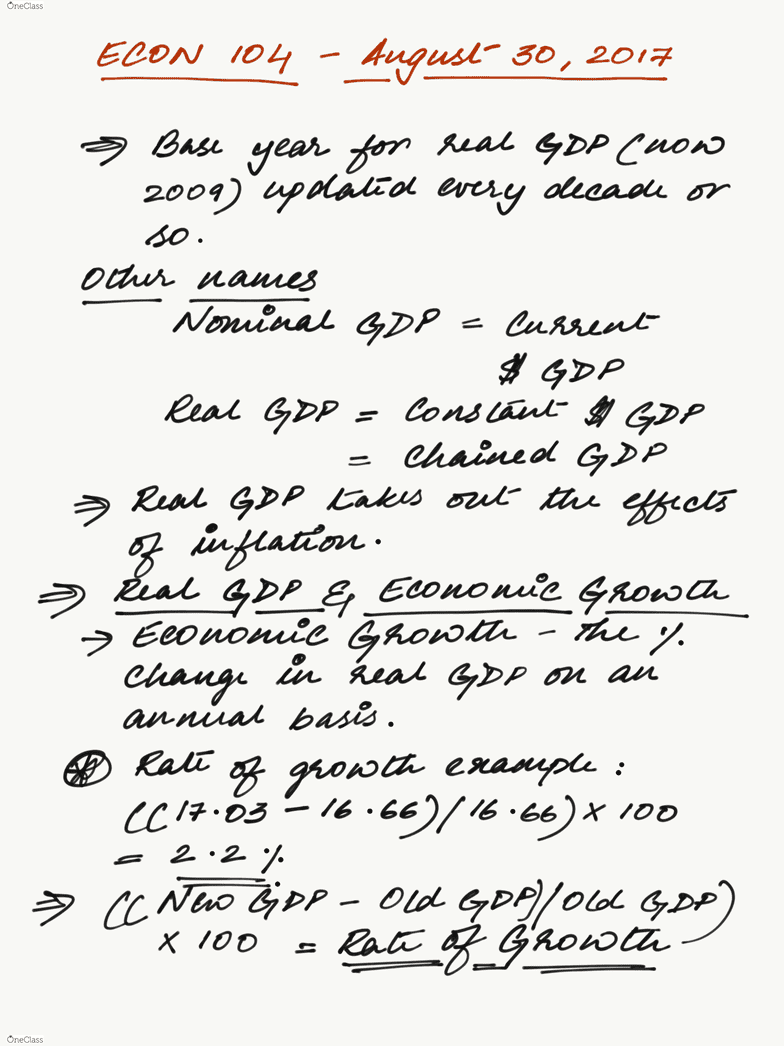 OneClass
ECON 104 - August 30, 2017
⇒ Base year for real GDP (now
2009) updated every decade or
so.
Other names
Nominal GDP = Current
$ GDP
Real GDP = Constant $ GDP
= Chained GDP
⇒ Real GDP takes out the effects
of inflation.
⇒ Real GDP & Economic Growth
→ Economic Growth - the %
change in real GDP on an
annual basis.
⊛ Rate of growth example :
((17.03 - 16.66)/16.66) × 100
= 2.2 %.
⇒ ((New GDP - Old GDP)/Old GDP)
× 100 = Rate of Growth
OneClass